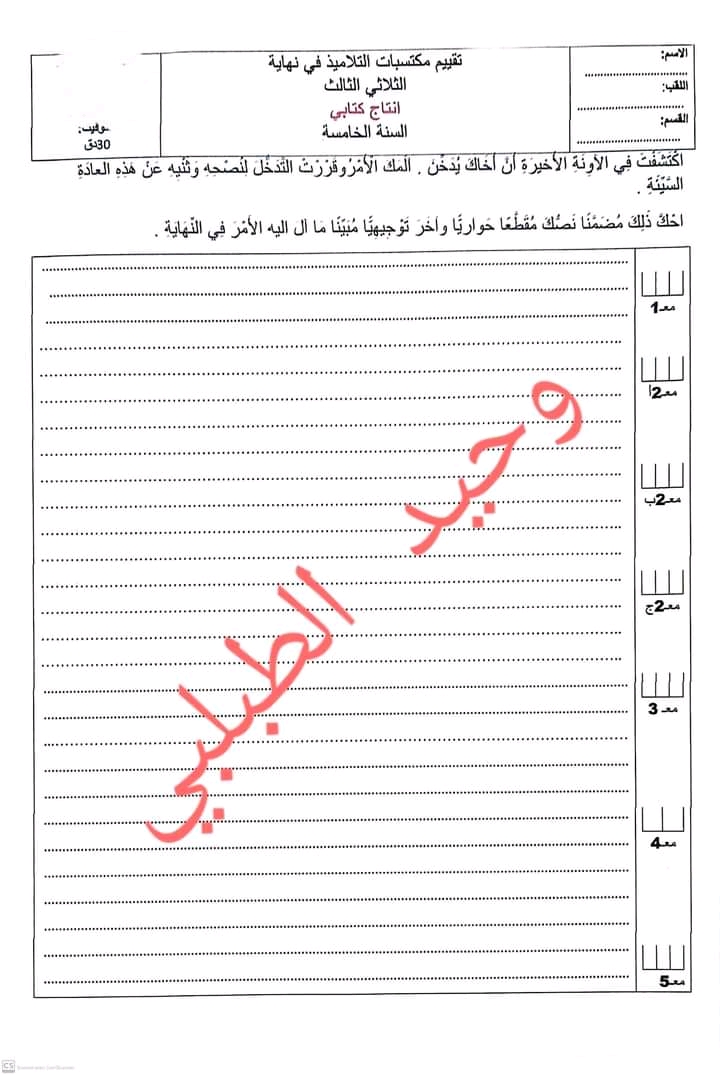 الاسم:
اللقب:
القسم:
تقييم مكتسبات التلاميذ في نهاية
الثلاثي الثالث
انتاج كتابي
السنة الخامسة
30دق
اكْتَشَفْتَ فِي الآوِنَةِ الأَخِيرَةِ أَنَّ أَخَاكَ يُدَخِّنُ . آلَمَكَ الأَمْرُ وقَرَرْتَ التَدَخُّلَ لِنُصْحِهِ وَثَنْيِهِ عَنْ هَذِهِ العادَةِ
السَّيِّئَةِ .
احْكِ ذَلِكَ مُضَمِّنًا نَصَّكَ مُقَطَّعًا حَوارِيًّا وآخَرَ تَوْجِيهِيًّا مُبَيِّنًا مَا آلَ اليه الأَمْرَ فِي النِّهَايَةِ .
معـ1
معـ2أ
معـ2ب
معـ2ج
معـ 3
معـ4
معـ5
وحيد الطبلبي
CS